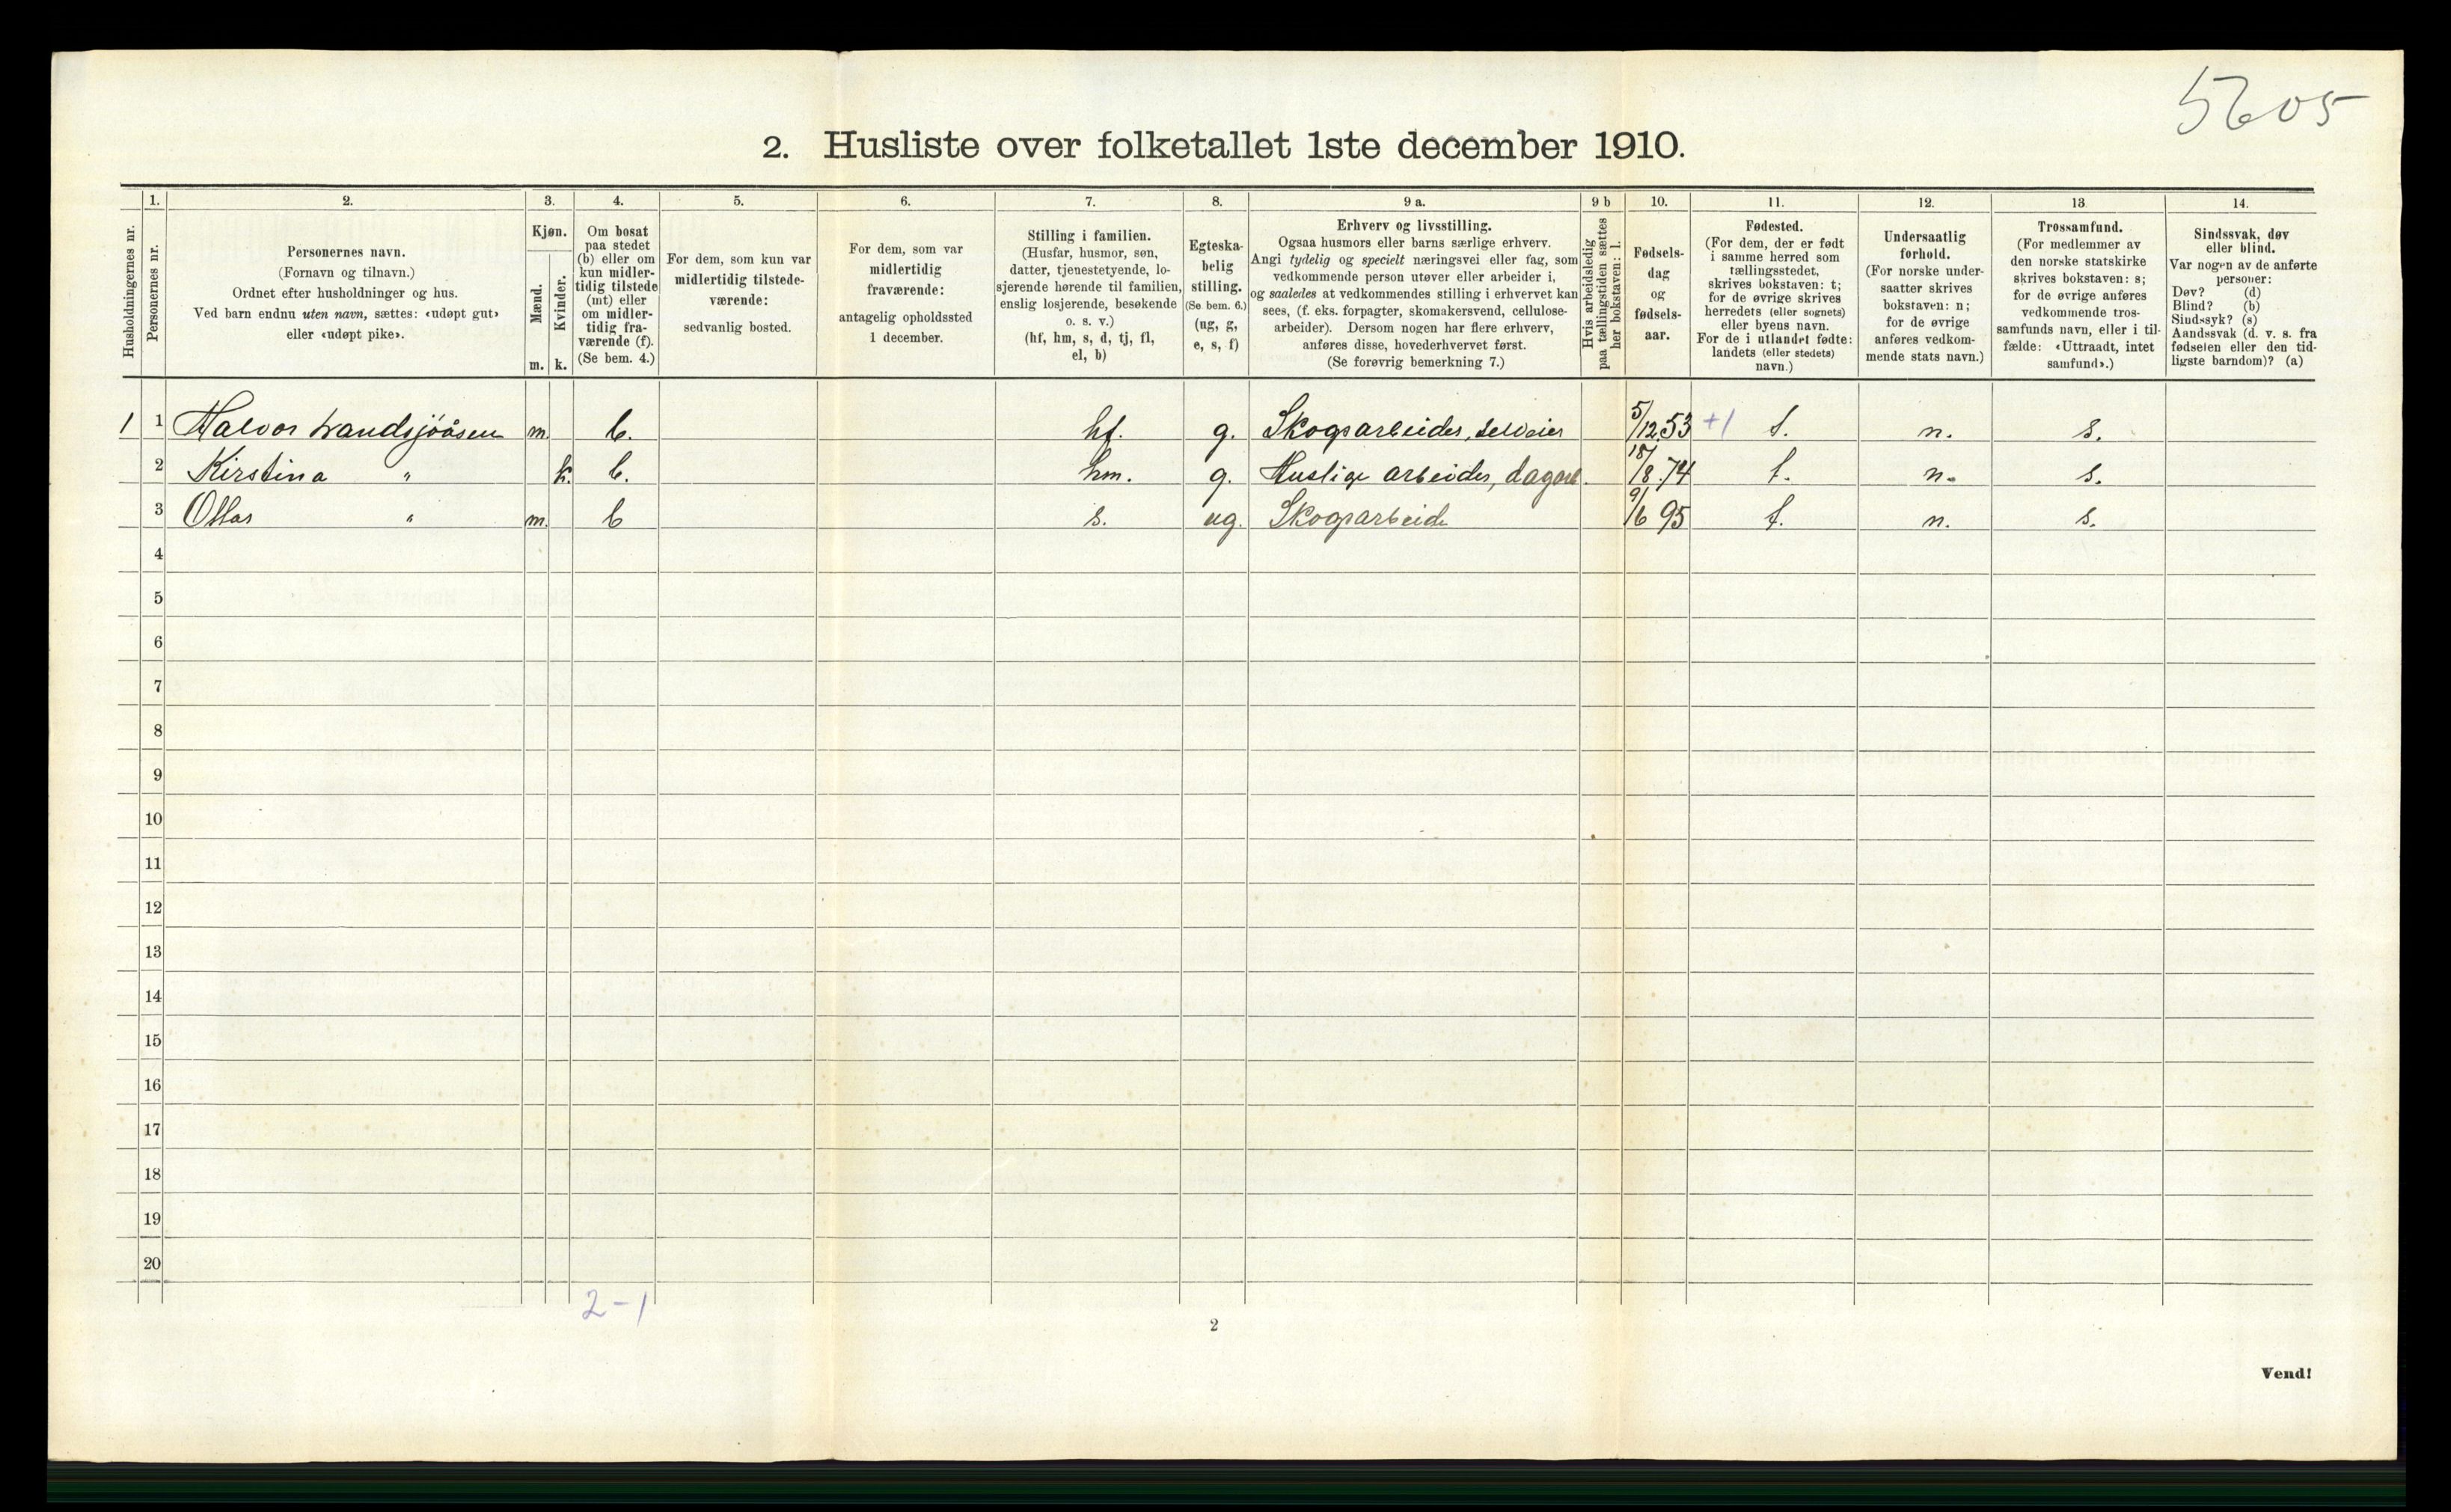 5605
2. Husliste over folketallet 1ste december 1910.
Husholdningernes nr.
1.
Personernes nr.
2.
Personernes navn.
(Fornavn og tilnavn.)
Ordnet efter husholdninger og hus.
Ved barn endnu uten navn, sættes: «udøpt gut»
eller «udøpt pike».
3.
Kjøn.
Mænd.
Kvinder.
m. k.
4.
Om bosat
paa stedet
(b) eller om
kun midler-
tidig tilstede
(mt) eller
om midler-
tidig fra-
værende (f).
(Se bem. 4.)
5.
For dem, som kun var
midlertidig tilstede-
værende:
sedvanlig bosted.
6.
For dem, som var
midlertidig
fraværende:
antagelig opholdssted
1 december.
7.
Stilling i familien.
(Husfar, husmor, søn,
datter, tjenestetyende, lo-
sjerende hørende til familien,
enslig losjerende, besøkende
o. s. v.)
(hf, hm, s, d, tj, fl,
el, b)
8.
Egteska-
belig
stilling.
(Se bem. 6.)
(ug, g,
e, s, f)
9 a.
Erhverv og livsstilling.
Ogsaa husmors eller barns særlige erhverv.
Angi tydelig og specielt næringsvei eller fag, som
vedkommende person utøver eller arbeider i,
og saaledes at vedkommendes stilling i erhvervet kan
sees, (f. eks. forpagter, skomakersvend, cellulose-
arbeider). Dersom nogen har flere erhverv,
anføres disse, hovederhvervet først.
(Se forøvrig bemerkning 7.)
9 b
Hvis arbeidsledig
paa tællingstiden sættes
her bokstaven: l.
10.
Fødsels-
dag
og
fødsels-
aar.
11.
Fødested.
(For dem, der er født
i samme herred som
tællingsstedet,
skrives bokstaven: t;
for de øvrige skrives
herredets (eller sognets)
eller byens navn.
For de i utlandet fødte:
landets (eller stedets)
navn.)
12.
Undersaatlig
forhold.
(For norske under-
saatter skrives
bokstaven: n;
for de øvrige
anføres vedkom-
mende stats navn.)
13
Trossamfund.
(For medlemmer av
den norske statskirke
skrives bokstaven: s;
for de øvrige anføres
vedkommende tros-
samfunds navn, eller i til-
fælde: «Uttraadt, intet
samfund».)
14.
Sindssvak, døv
eller blind.
Var nogen av de anførte
personer:
Døv? (d)
Blind? (b)
Sindssyk? (s)
Aandssvak (d. v. s. fra
fødselen eller den tid-
ligste barndom)? (a)
1 1 Halvor Landsjöåsen m. b. hf. g. Skogsarbeider, selveier 5/12.53 +1 t. n. s.
2 Kirstina " k. b. hm. g. Huslige arbeider, dagarb. 18/8.74 t. n. s.
3 " m. b s. ug. Skogsarbeide 9/6 95 t. n. s.
4
5
6
7
8
9
10
11
12
13
14
15
16
17
18
19
20
2-1
2
Vend!